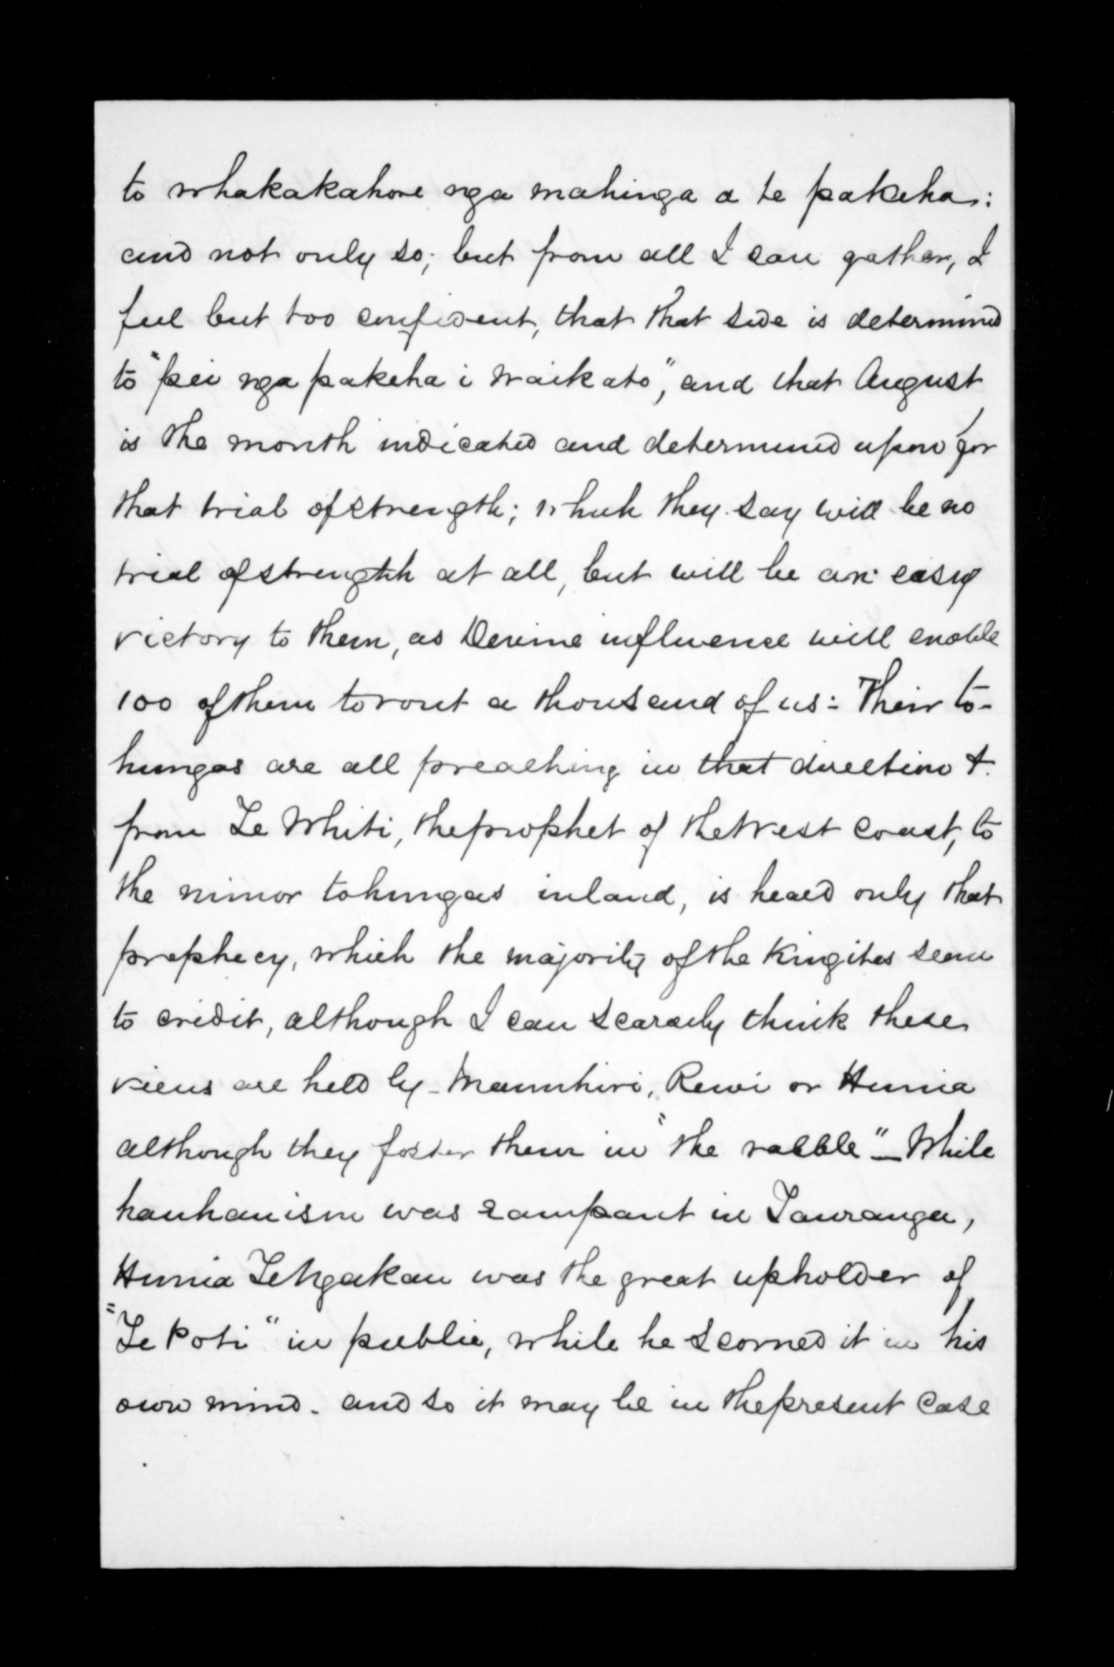 to whakakahore nga mahinga a te pakeha:
and not only so; but from all I can gather, I
feel but too confident, that that side is determined
to "pei nga pakeha i Waikato", and that August
is the month indicated and determined upon for
that trial of strength; which they say will be no
trial of strength at all, but will be an easy
victory to them, as Devine influence will enable
100 of them to rout a thousand of us: Their to-
hungas are all preaching in that direction &
from Te Whiti, the prophet of the West Coast, to
the minor tohungas inland, is heard only that
prophecy, which the majority of the Kingites seem
to credit, although I can scarcely think these
views are held by - Manuhiri, Rewi or Hunia
although they foster them in "the rabble" - While
hauhauism was rampant in Tauranga,
Hunia Te Ngakau was the great upholder of
"Te Poti" in public, while he scorned it in his
own mind. and so it may be in the present case